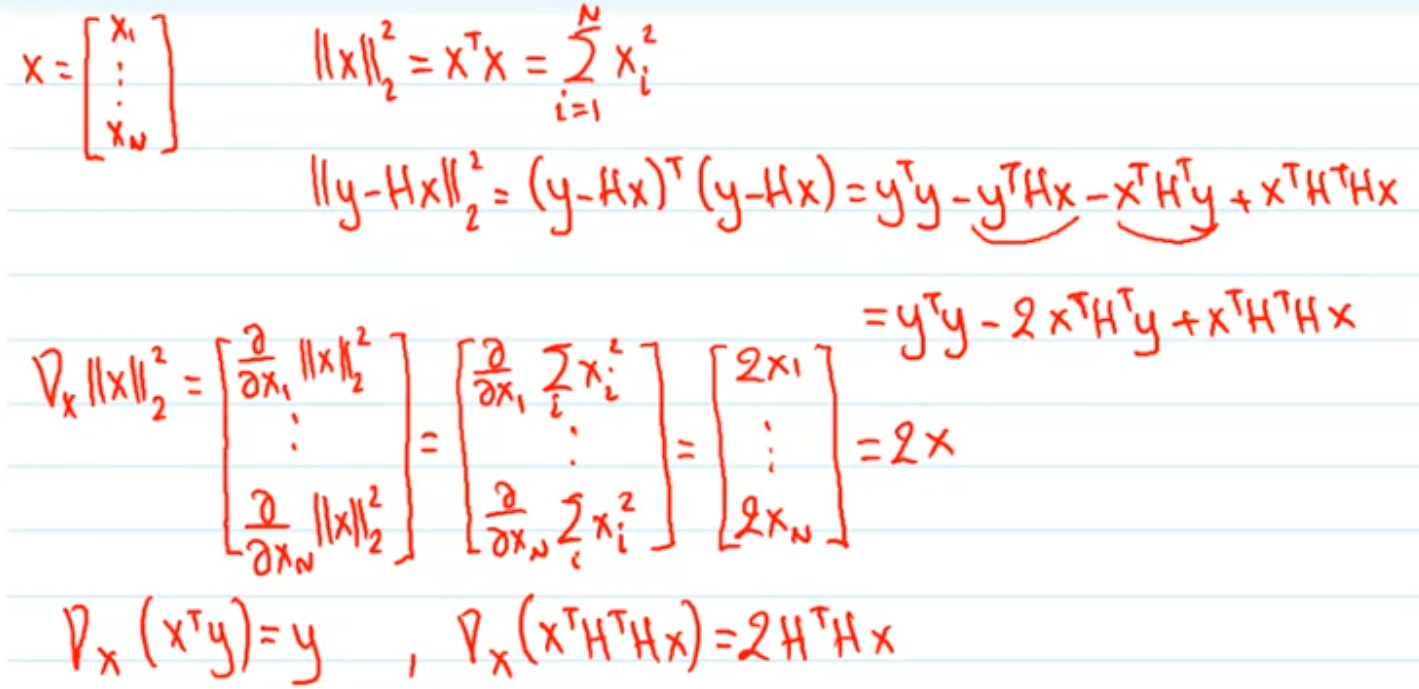 x = [x₁ ⋮ x_N]   ‖x‖₂² = xᵀx = ∑_{i=1}^{N} x_i²
‖y-Hx‖₂² = (y-Hx)ᵀ(y-Hx) = yᵀy - yᵀHx - xᵀHᵀy + xᵀHᵀHx
= yᵀy - 2xᵀHᵀy + xᵀHᵀHx
∇ₓ‖x‖₂² = [∂/∂x₁ ‖x‖₂² ⋮ ∂/∂x_N ‖x‖₂²] = [∂/∂x₁ ∑_i x_i² ⋮ ∂/∂x_N ∑_i x_i²] = [2x₁ ⋮ 2x_N] = 2x
∇ₓ(xᵀy) = y , ∇ₓ(xᵀHᵀHx) = 2HᵀHx